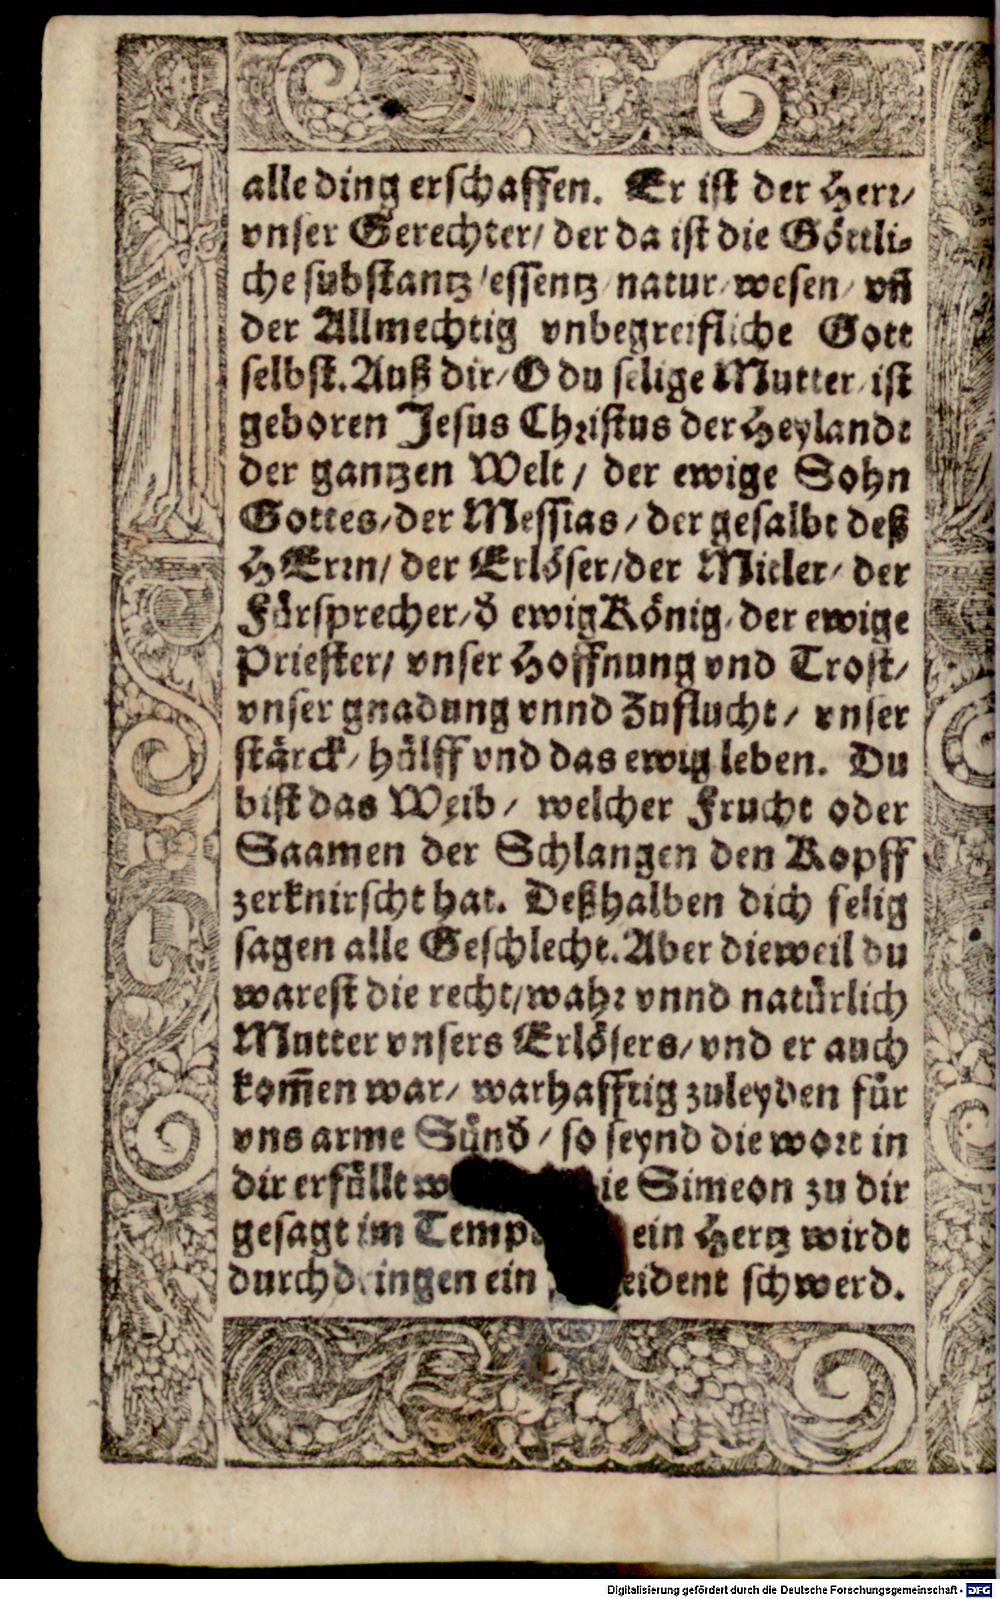 alle ding erschaffen. Er ist der Herr/
vnser Gerechter/ der da ist die Göttli-
che substantz/ essentz/ natur/ wesen/ vñ
der Allmechtig vnbegreifliche Gott
selbst. Auß dir/ O du selige Mutter/ ist
geboren Jesus Christus der Heylandt
der gantzen Welt/ der ewige Sohn
Gottes/ der Messias/ der gesalbt deß
HErrn/ der Erlöser/ der Mitler/ der
Fürsprecher/ d̄ ewig König/ der ewige
Priester/ vnser Hoffnung vnd Trost/
vnser gnadung vnnd Zuflucht/ vnser
stärck/ hülff vnd das ewig leben. Du
bist das Weib/ welcher Frucht oder
Saamen der Schlangen den Kopff
zerknirscht hat. Deßhalben dich selig
sagen alle Geschlecht. Aber dieweil du
warest die recht/ wahr vnnd natürlich
Mutter vnsers Erlösers/ vnd er auch
kom̄en war/ warhafftig zuleyden für
vns arme Sünd̄/ so seynd die wort in
dir erfüllt Simeon zu dir
gesagt im ein Hertz wirdt
durchdringen ein schwerd.
Digitalisierung gefördert durch die Deutsche Forschungsgemeinschaft - DFG